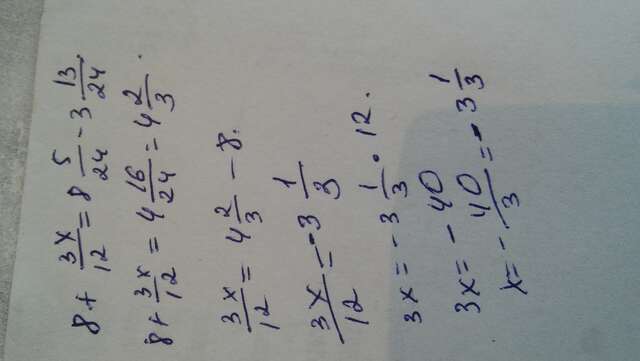 8 + 3x/12 = 8 5/24 - 3 13/24.
8 + 3x/12 = 4 16/24 = 4 2/3.
3x/12 = 4 2/3 - 8.
3x/12 = -3 1/3
3x = -3 1/3 · 12.
3x = -40
x = -40/3 = -3 1/3